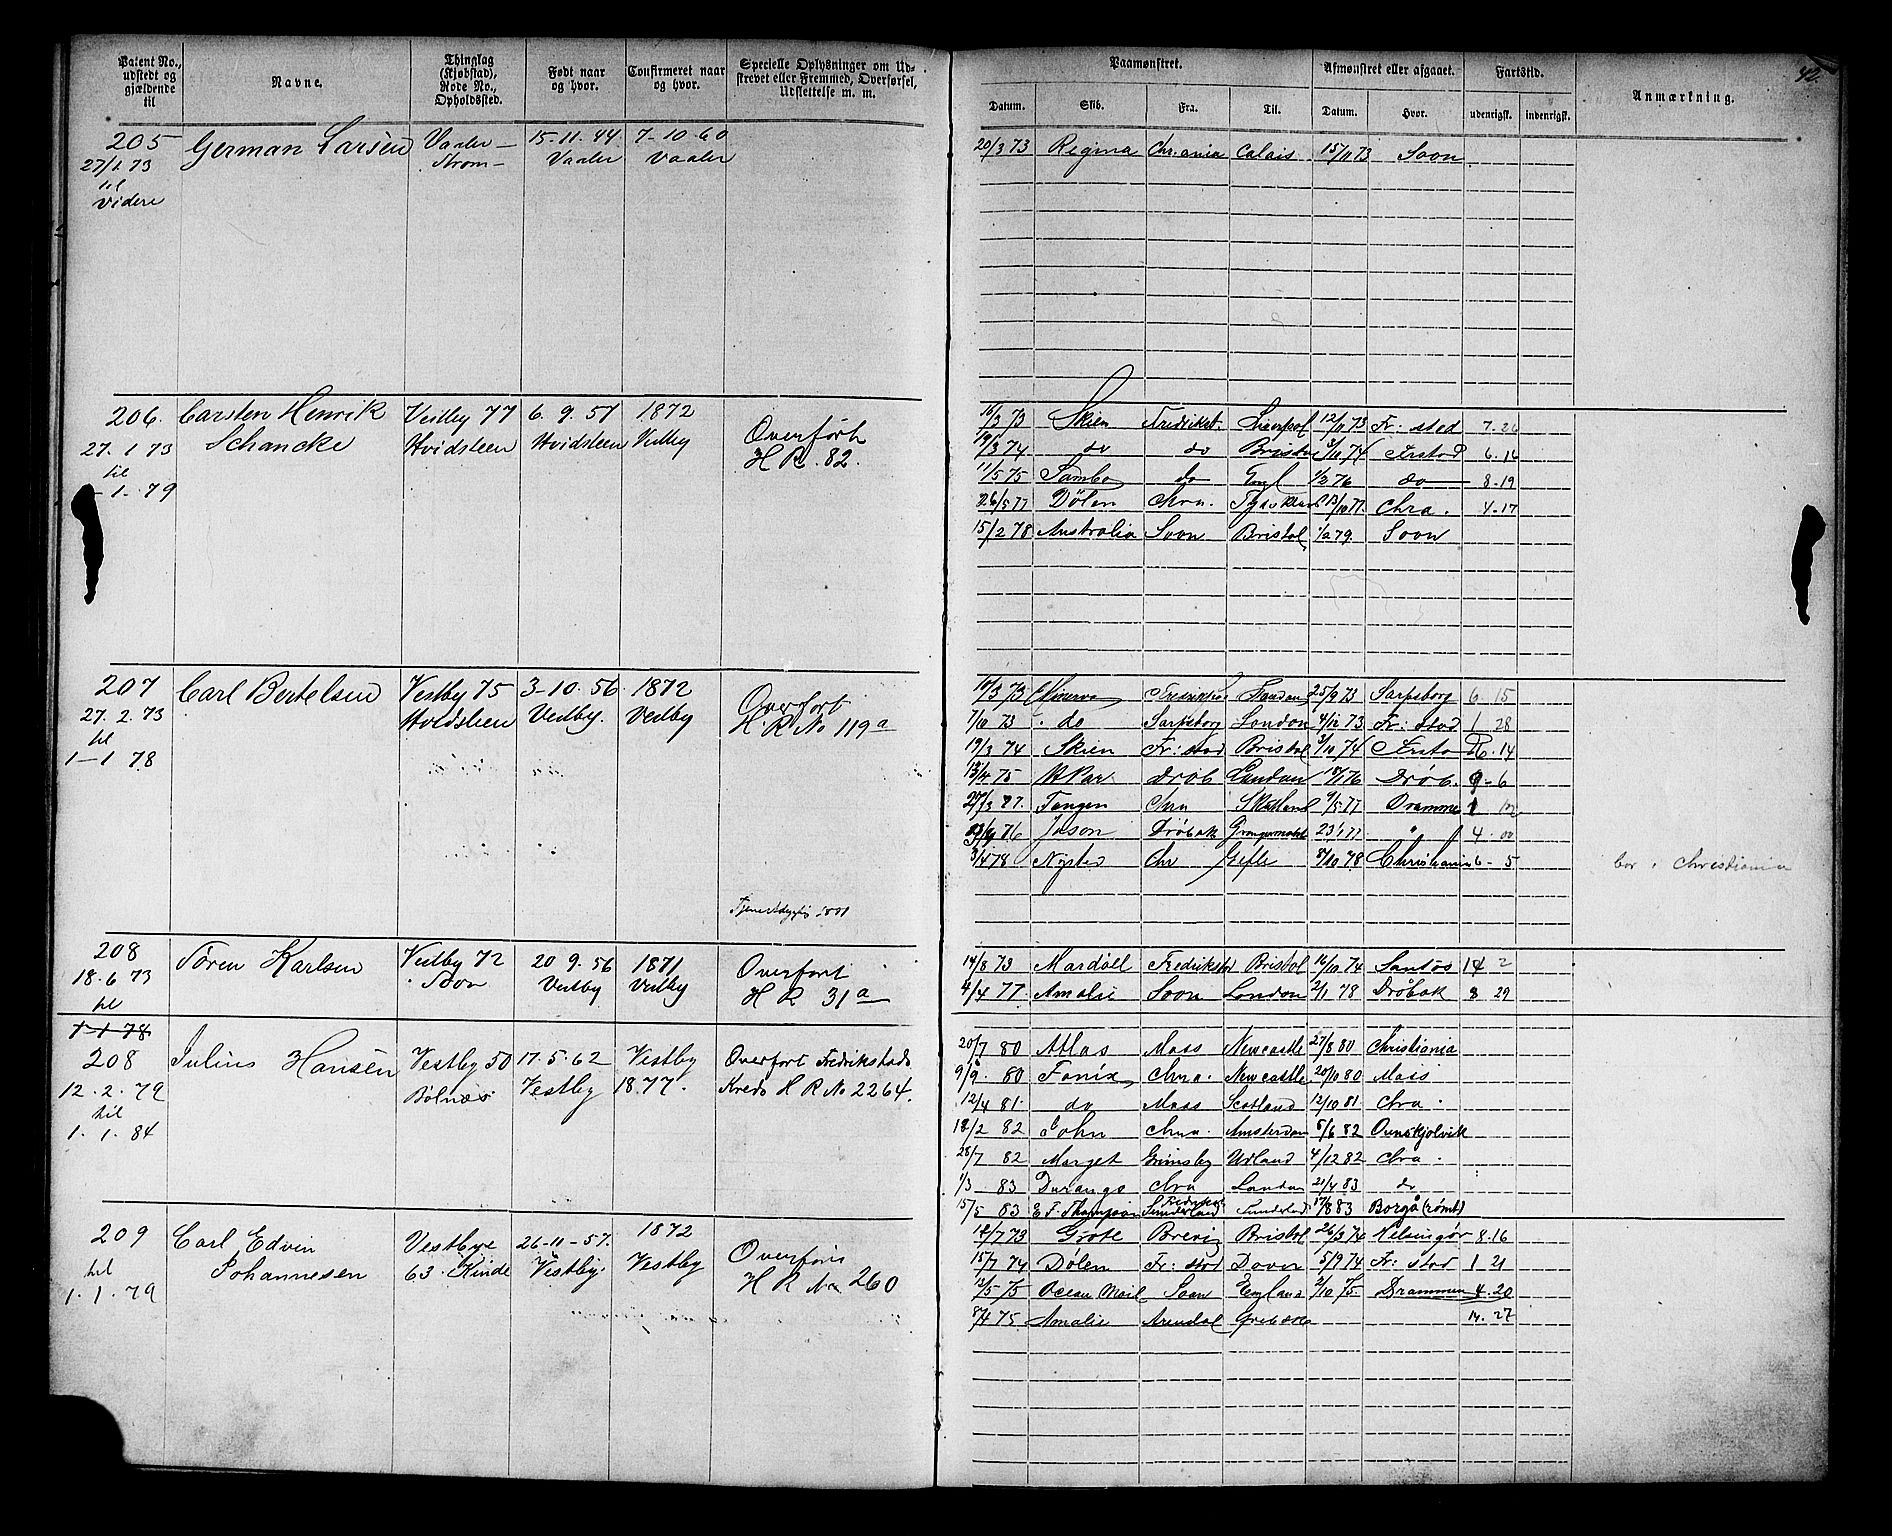 Patent No., udstedt og gjældende til
Navne.
Thinglag (Kjøbstad), Rode No., Opholdssted.
Født naar og hvor.
Confirmeret naar og hvor.
Specielle Oplysninger om Udskrevet eller Fremmed, Overførsel, Udslettelse m. m.
Paamønstret.
Afmønstret eller afgaaet.
Fartstid.
Anmærkning.
42.
Datum. Skib. Fra. Til. Datum. Hvor. udenrigsk. indenrigsk.
205 German Larsen Vaaler- 15-11.44. 7-10-60
27/1.73 Strom- Vaaler Vaaler
til
videre
20/3 73 Regina Chr.ania Calais 15/11 73 Soon
206. Carsten Henrik Vestby 77 6. 9. 57 1872
27. 1. 73 Schancke Hvidsteen Hvidsteen Vestby Overført
til H R. 82.
-1. 79
16/3 73 Skien Fredrikst. Liverpol 12/11 73 Fr: stad 7. 26
19/3 74 do do Bristol 3/10 74 Frstad 6. 14
11/5 75 Sambo do Engl 1/2 76 do 8. 19
26/5 77 Dølen Chra. 13/10 77. Chra. 4. 17
15/2 78 Australia Soon Bristol 1/2 79. Soon
207 Carl Bertelsen Vestby 75 3-10. 56. 1872
27. 2. 73 Hvidsteen Vestby. Vestby Overført
til H R No 119 a
1-1 78
17/3 73 Minerva London 25/9 73 Sarpsborg 6. 15
7/10 73 do Sarpsborg London 4/12 73 Fr: stad 1 28
19/3 74 Skien Fr: stad Bristol 3/10 74 Frstad 6. 14
13/4 75 Drøb London 18/1 76 Drøb. 9-6
27/3 77. Tangen Chra Skotland 9/5 77 Drammen 1
Jason Drøbak 23/1 77 " 4. 00
3/4 78 Nysted Chr Gefle 8/10 78 Christiania 6-5
bor i Christiania
208 Søren Karlsen Vestby 72 20 9. 56 1871
18. 6 73 Soon Vestby Vestby Overført
til H R 31 a
1-1 78
14/8 73 Mardøll Fredrikstad Bristol 16/10 74 Santos 14 2
4/4 77. Amalie Soon London 2/1 78 Drøbak 8 29
208 Julius Hansen Vestby 50 17. 5. 62 Vestby Overført Fredrikstads
12. 2. 79 Bølnæs Vestby 1877. Kreds H R No 2264.
til
1. 1. 84
20/7 80 Atlas Moss Newcastle 27/8 80 Christiania
9/9. 80 Fønix Chra. Newcastle. 20/10 80 Moss
12/4 81. do Moss Scotland 12/10 81 Chra.
18/2 82 John Chra. Amsterdam 5/6 82 Ørnskjolvik
28/7 82 Marget Grimsby Udland 4/12 82 Chra.
1/3 83 Durango Chra London 21/4 83 do
15/5 83 E. F. Thompson Sunderland 17/8 83 Borgå (rømt)
209 Carl Edvin Vestbye 26-11-57. 1872
til Johannesen 63. Kinde Vestby. Vestby Overføris
1. 1. 79 H R No 260
12/7 73 Grote Brevig Bristol 26/3 74 Helsingør 8. 16
15/7 74 Dølen Fr: stad Dover 5/9 74 Fr: stad 1 21
12/5 75 Ocean Mail Soon England 2/10 75 Drammen 4. 20
8/4 75 Amalie Arendal 14. 27